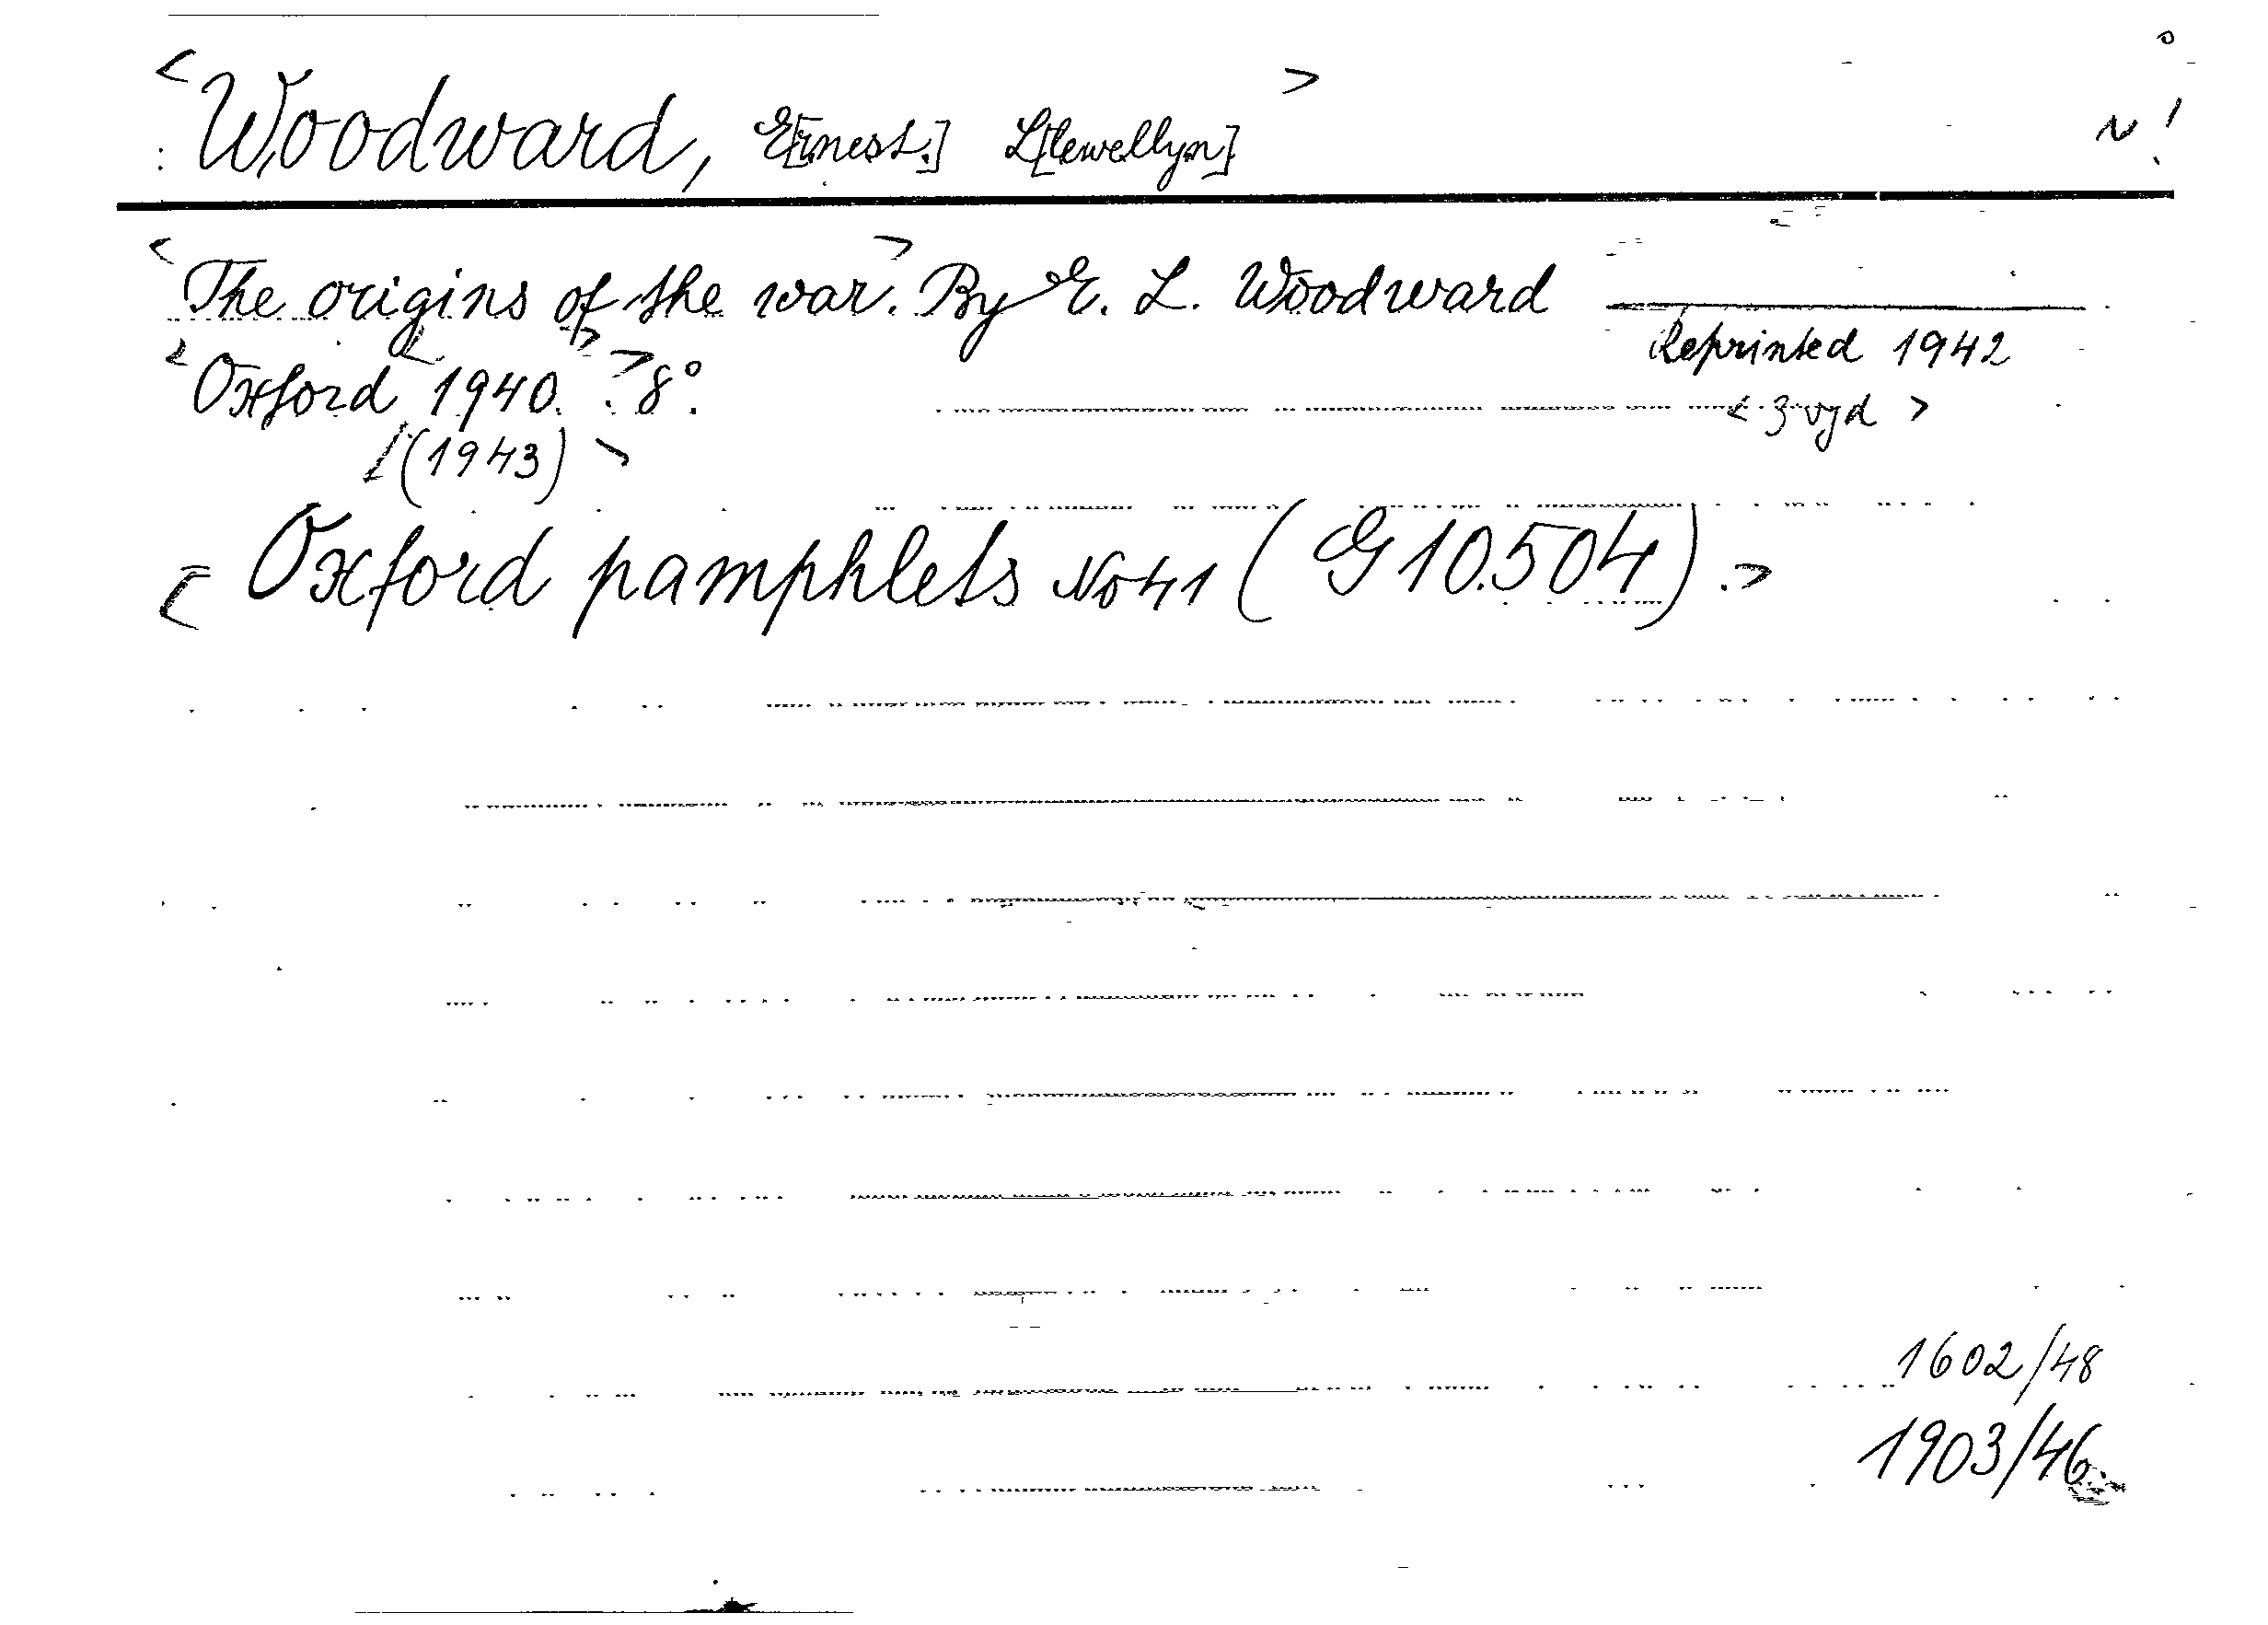 <Woodward, E[rnest.] L[lewellyn]>
N!
<The origins of the war.> By E. L. Woodward
Reprinted 1942
<Oxford <1940.> ?>8°.
<3 vyd>
<(1943)>
<Oxford pamphlets No 41 (G 10.504).>
1602/48
1903/46